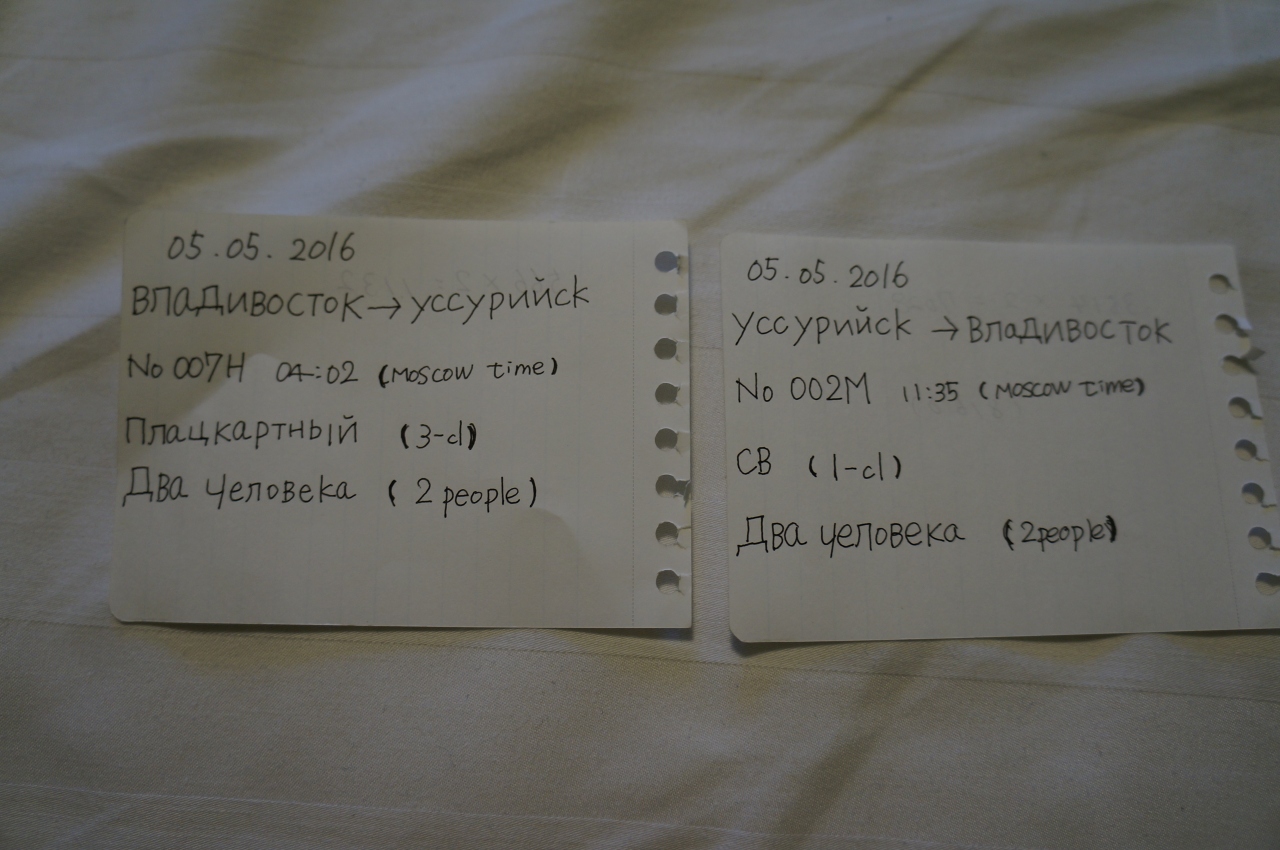 05.05.2016
ВЛАДИВОСТОК → УССУРИЙСК
No 007Н 04:02 (Moscow time)
Плацкартный (3-cl)
Два человека (2 people)
05.05.2016
УССУРИЙСК → ВЛАДИВОСТОК
No 002М 11:35 (Moscow time)
СВ (1-cl)
Два человека (2people)